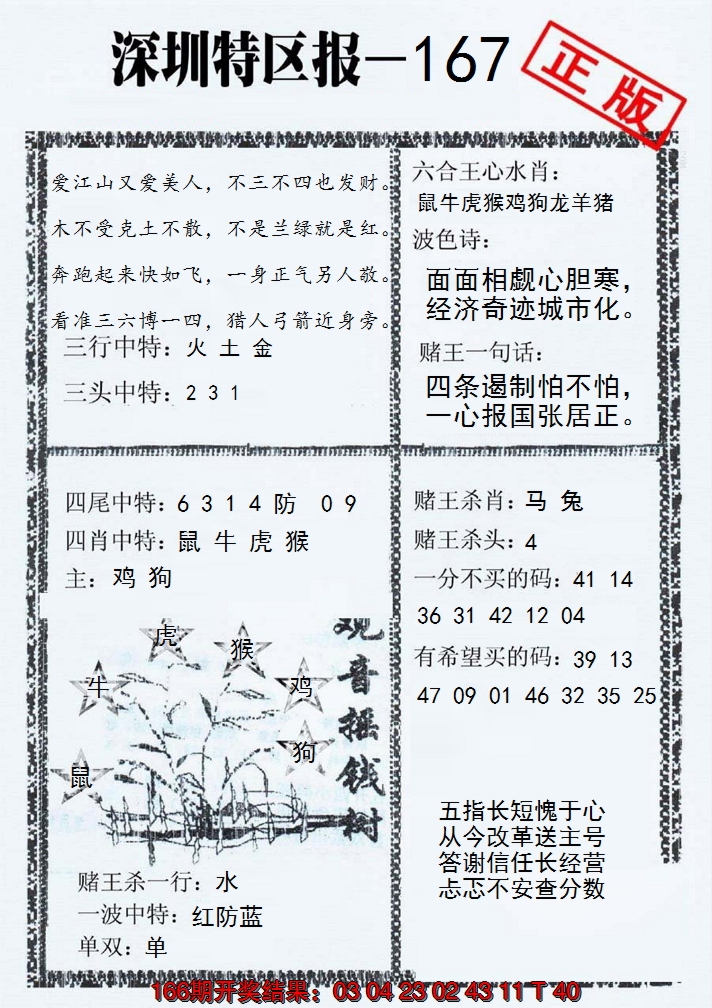 深圳特区报—167
正版
爱江山又爱美人，不三不四也发财。
木不受克土不散，不是兰绿就是红。
奔跑起来快如飞，一身正气另人敬。
看准三六博一四，猎人弓箭近身旁。
三行中特：火 土 金
三头中特：2 3 1
六合王心水肖：
鼠牛虎猴鸡狗龙羊猪
波色诗：
面面相觑心胆寒，
经济奇迹城市化。
赌王一句话：
四条遏制怕不怕，
一心报国张居正。
四尾中特：6 3 1 4 防 0 9
四肖中特：鼠 牛 虎 猴
主：鸡 狗
虎
猴
牛
鸡
狗
鼠
观音摇钱树
赌王杀一行：水
一波中特：红防蓝
单双：单
赌王杀肖：马 兔
赌王杀头：4
一分不买的码：41 14
36 31 42 12 04
有希望买的码：39 13
47 09 01 46 32 35 25
五指长短愧于心
从今改革送主号
答谢信任长经营
忐忑不安查分数
166期开奖结果：03 04 23 02 43 11 T 40